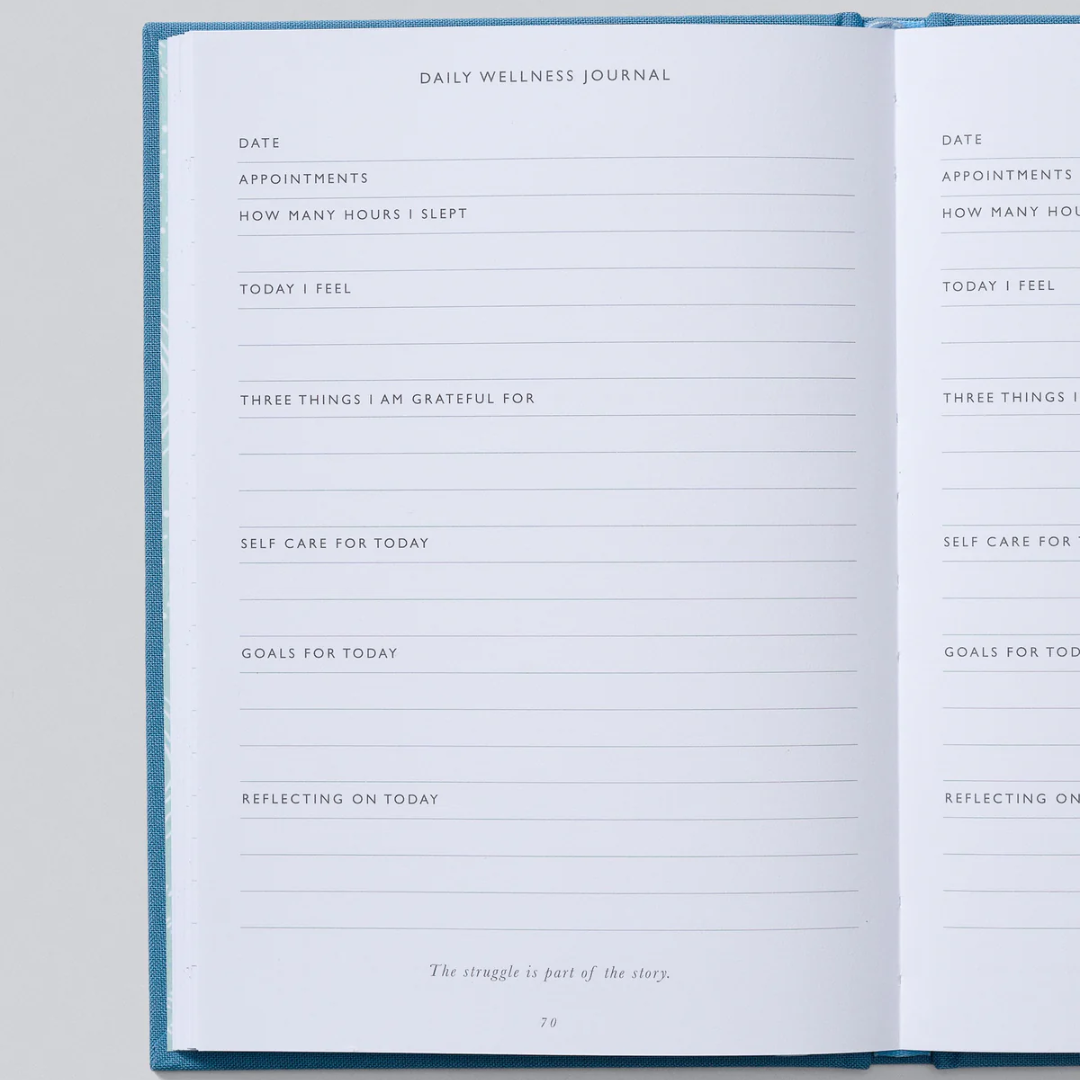 DAILY WELLNESS JOURNAL
DATE
APPOINTMENTS
HOW MANY HOURS I SLEPT
TODAY I FEEL
THREE THINGS I AM GRATEFUL FOR
SELF CARE FOR TODAY
GOALS FOR TODAY
REFLECTING ON TODAY
The struggle is part of the story.
70
DATE
APPOINTMENTS
HOW MANY
TODAY I FEEL
THREE THINGS I
SELF CARE FOR
GOALS FOR
REFLECTING ON